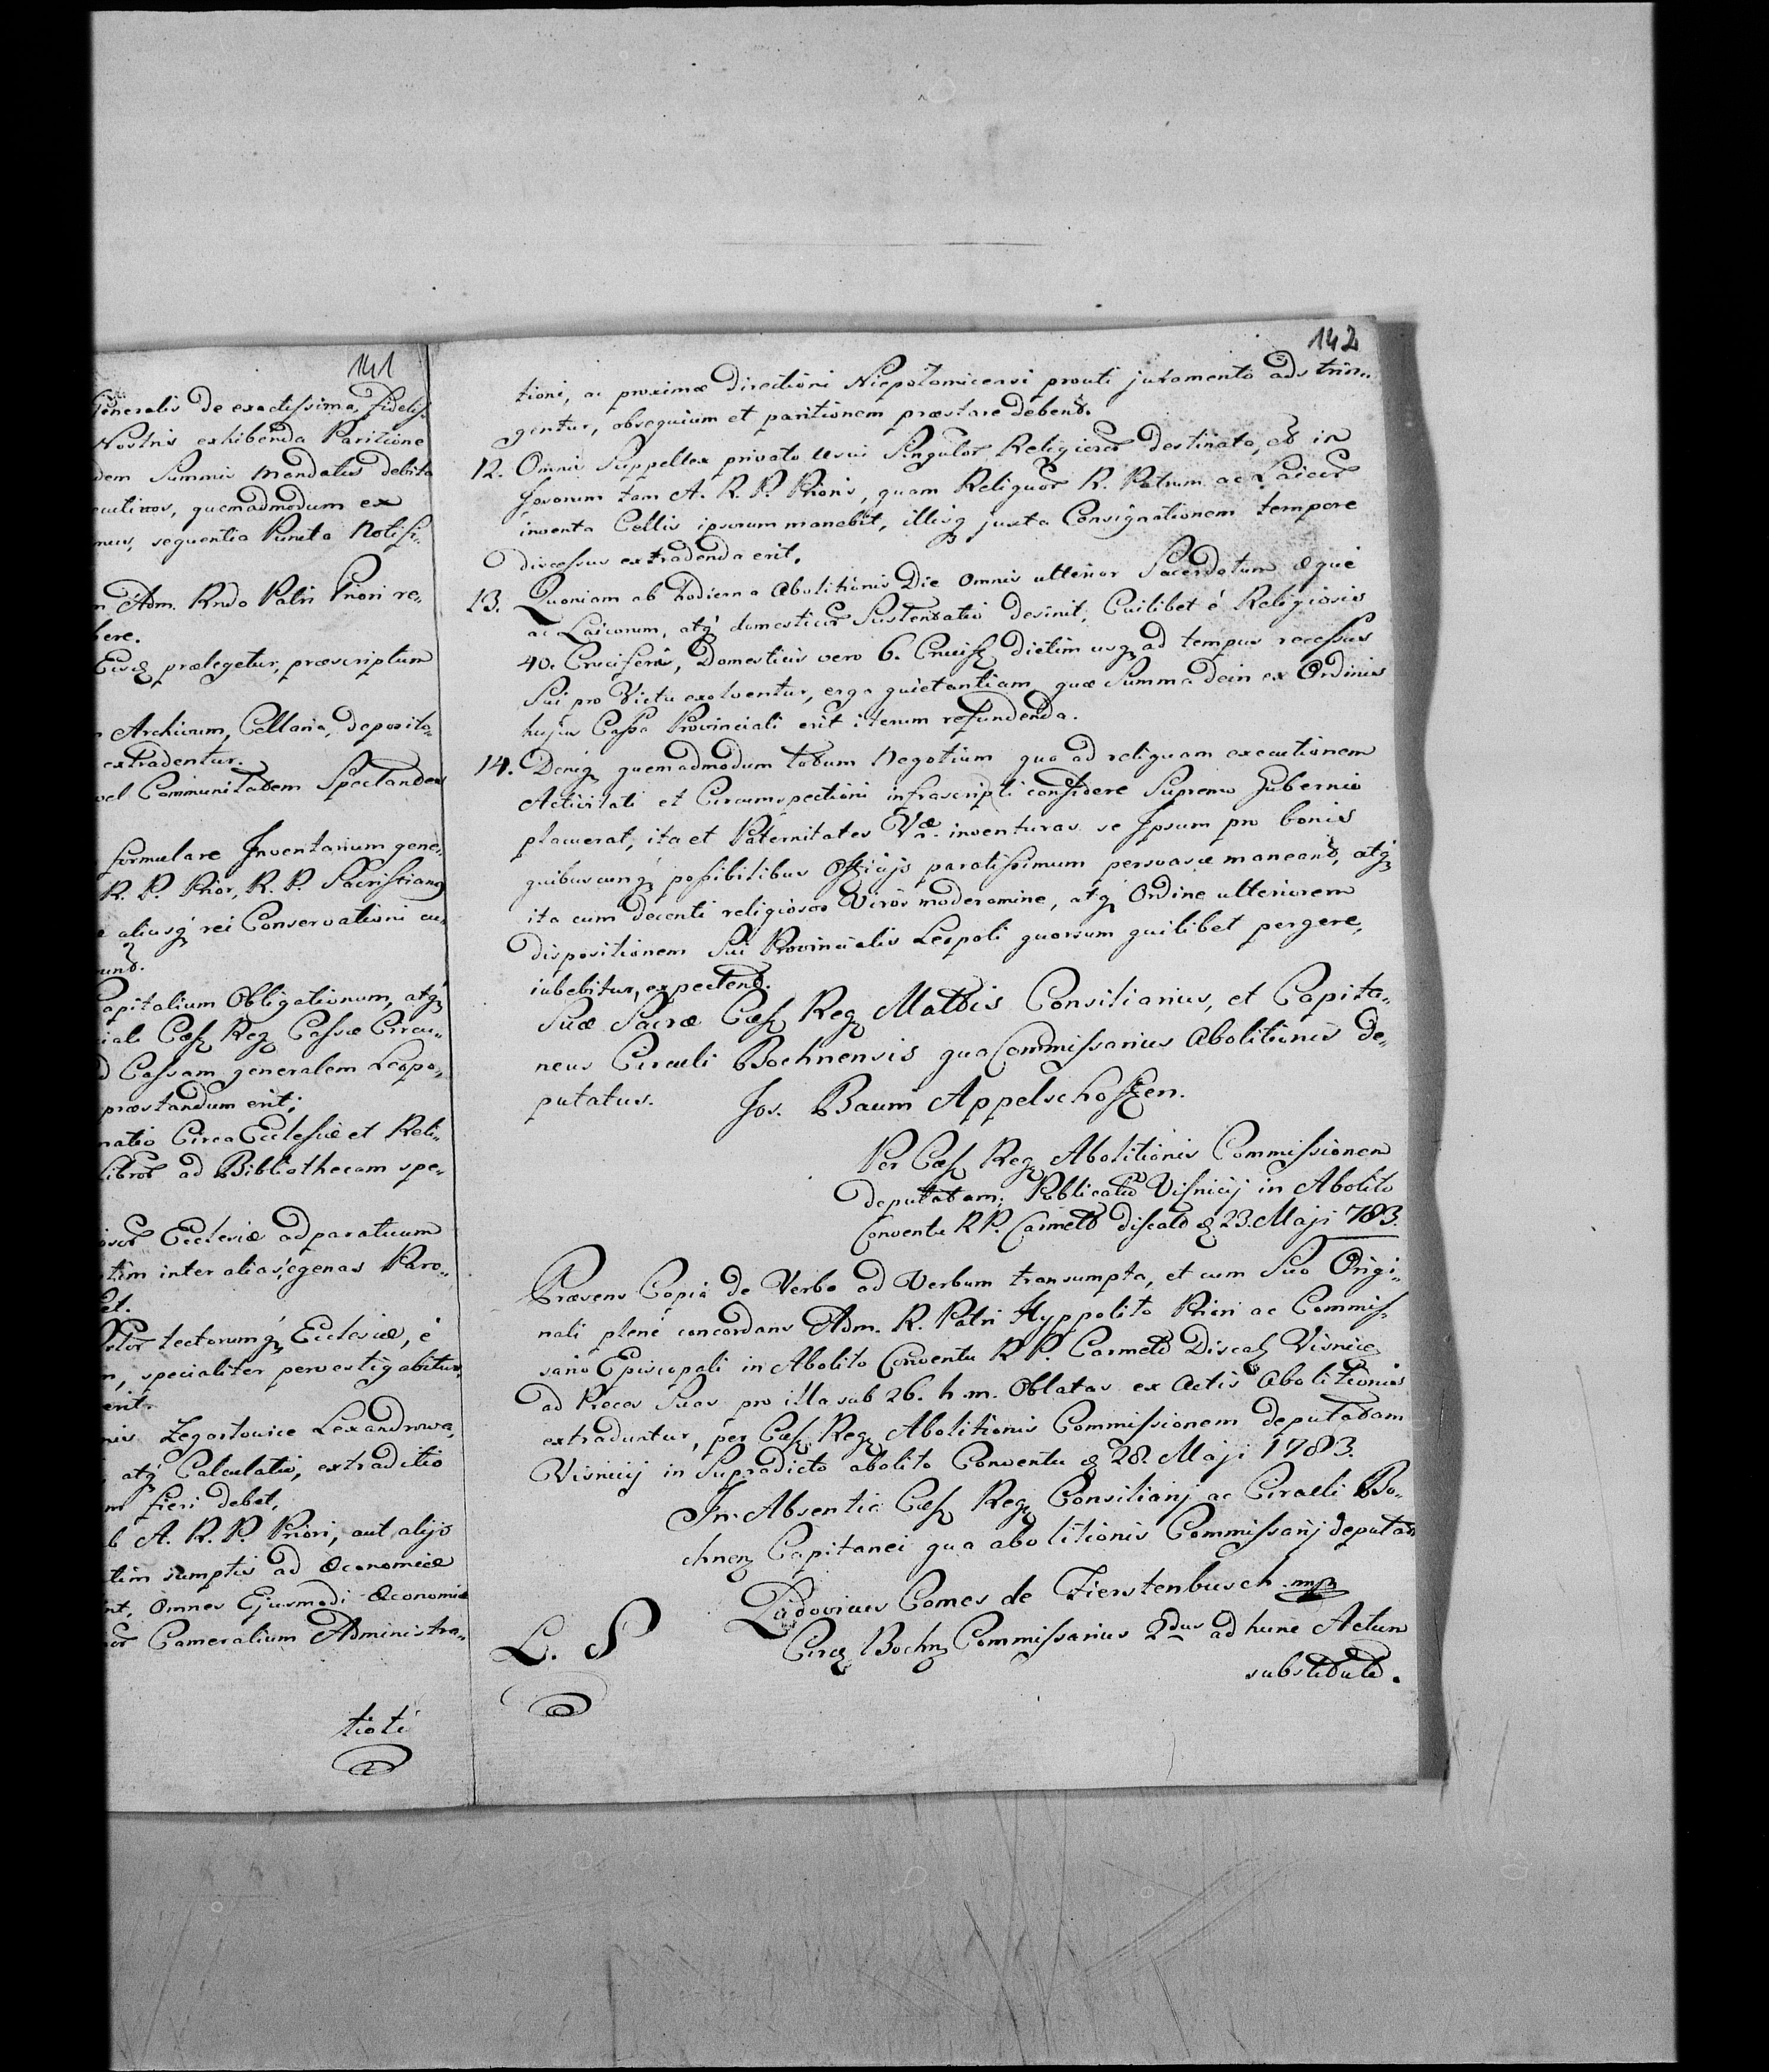 141
Generalis de exactissima, fideliss
Nostris exhibenda Paritione
dem Summis Mandatis debita
cutivos, quemadmodum ex
mus, sequentia Puncta Notifi¬
Adm. Rndo Patri Priori re¬
bere.
Eisq prælegetur, præscriptum
Archivum, Cellaria, deposito¬
extradentur.
vel Communitatem Spectandes
formulare Inventarium gene¬
R. P. Prior, R. P. Sacristianq
aliusq rei Conservationi cu¬
unt.
Capitalium Obligationum, atq
iali Cæs Reg Cassæ Circu¬
d Cassam generalem Leopo¬
præstandum erit;
natio Circa Ecclesiæ et Reli¬
libror ad Bibliothecam spe¬
Ecclesiæ adparatuum
tim inter alias, egenas Paro¬
et.
tectorumq Ecclesiæ, é
n, specialiter pervestigabitur,
erit.
Zegartowice Lexandrowa,
atq Calculatio, extraditio
m fieri debet,
b A. R. P. Priori, aut alijs
tim sumptis ad Œconomiæ
nt, Omnes Ejusmodi Œconomiæ
Cameralium Administra¬
tioti
142
tioni, ac proximæ directioni Niepolomicensi prouti juramento adstrin¬
gentur, obsequium et paritionem præstare debent.
12. Omnis Suppellex privato usui Singulor Religiosor destinata, et in
Ipsorum tam A. R. P. Prioris, quam Reliquor R. Patrum ac Laicor
inventa Cellis ipsorum manebit, illisq juxta Consignationem tempore
discessus extradenda erit.
13. Quoniam ab hodierna Abolitionis Die Omnis ulterior Sacerdotum æque
ac Laicorum, atq domesticor Sustentatio desinit, Cuilibet é Religiosis
40. Cruciferi, Domesticis vero 6. Crucif dietim usq ad tempus recessus
Sui pro Victu exolventur, erga quietantiam quæ Summa dein ex Ordinis
hujus Cassa Provinciali erit iterum refundenda.
14. Deniq quemadmodum totum Negotium quo ad reliquam executionem
Activitati et Circumspectioni infrascripti confidere Supremo Gubernio
placuerat, ita et Paternitates Væ. inventuras se Ipsum pro bonis
quibuscunq possibilibus Officijs paratissimum persvasæ maneant, atq
ita cum decenti religiosos Viros moderamine, atq Ordine ulteriorem
dispositionem Sui Provincialis Leopoli quorsum quilibet pergere,
iubebitur, expectent.
Suæ Sacræ Cæs Reg Mattis Consiliarius, et Capita¬
neus Circuli Bochnensis qua Commissarius Abolitionis de¬
putatus. Jos. Baum Appelschoffen.
Per Cæs Reg Abolitionis Commissionem
deputatam; Publicatum Visnicij in Abolito
Conventu RP. Carmelt discalt d 23. Maji 783.
Præsens Copia de Verbo ad Verbum transumpta, et cum Suo Origi¬
nali plené concordans Adm. R. Patri Hyppolito Priori ac Commis¬
sario Episcopali in Abolito Conventu R P. Carmelt Discal Visnice
ad Preces Suas pro illa sub 26. h. m. Oblatas ex Actis Abolitionis
extraduntur, per Cæs. Reg Abolitionis Commissionem deputatam
Visnicij in Supradicto abolito Conventu d 28. Maji 1783.
In Absentia Cæs Reg Consiliarij ac Circuli Bo¬
chnen Capitanei qua abolitionis Commissarij deputati
Ludovicus Comes de Fierstenbusch mp
Circ Bochn Commissarius 2dus ad hunc Actum
substitutus.
L. S